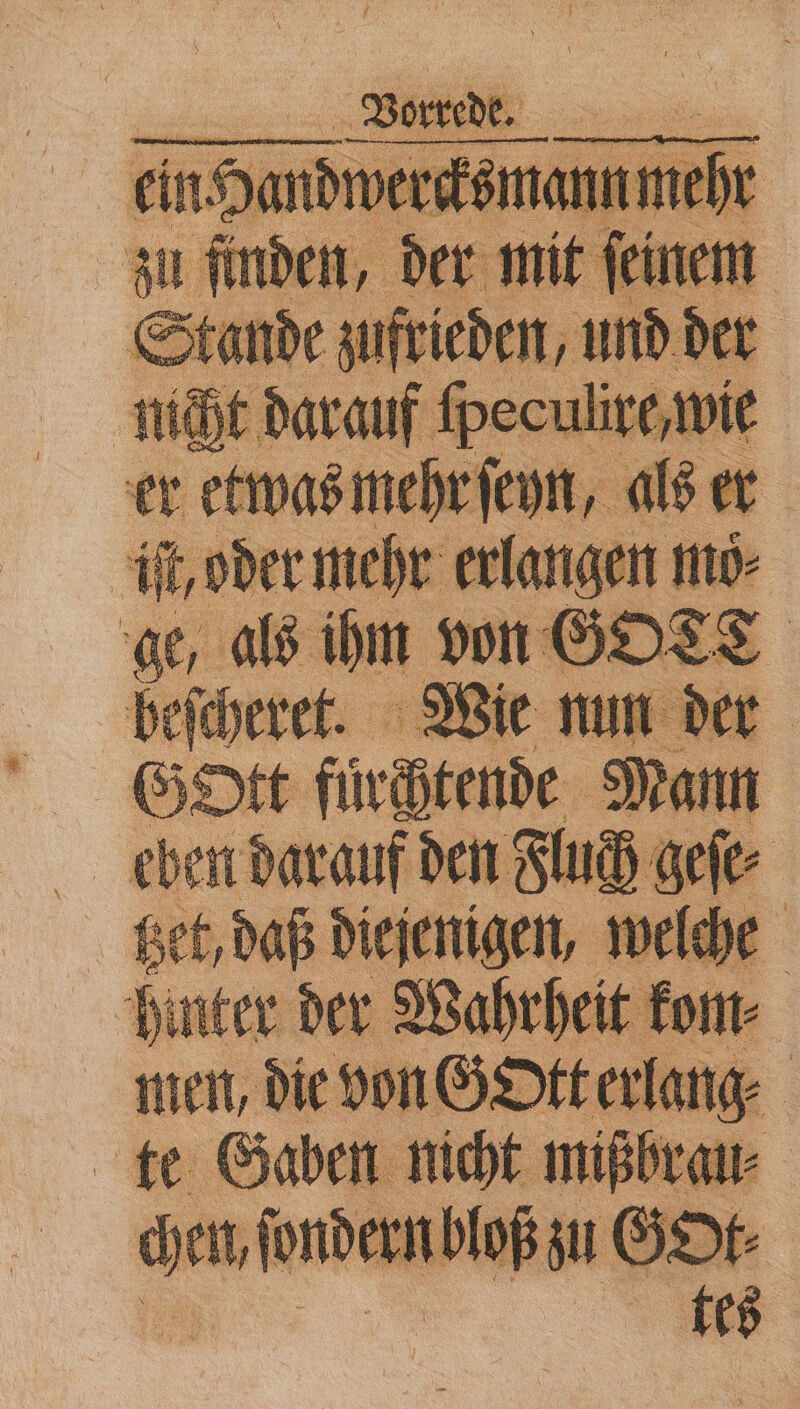 Vorrede.
ein Handwercksmann mehr
zu finden, der mit ſeinem
Stande zufrieden, und der
nicht darauf ſpeculire, wie
er etwas mehr ſeyn, als er
iſt, oder mehr erlangen moͤ⸗
ge, als ihm von GOTT
beſcheret. Wie nun der
GOtt fuͤrchtende Mann
eben darauf den Fluch geſe⸗
tzet, daß diejenigen, welche
hinter der Wahrheit kom⸗
men, die von GOtt erlang⸗
te Gaben nicht mißbrau⸗
chen, ſondern bloß zu GOt⸗
tes